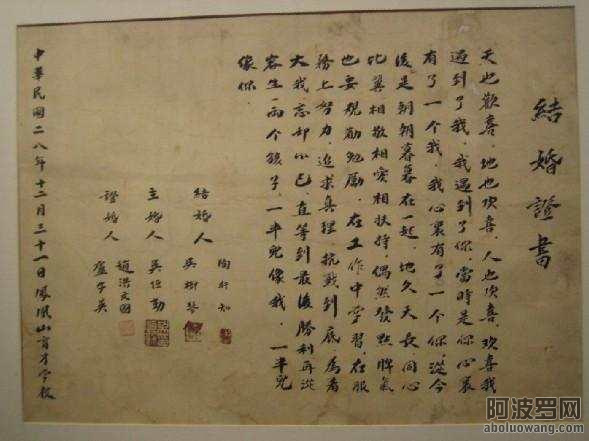 結婚證書
天也歡喜,地也欢喜,人也欢喜,欢喜我
遇到了我,我遇到了你,當時是你心裏
有了一个我,我心裏有了一个你,從今
後是朝朝暮暮在一起,地久天長,同心
比翼相敬相爱相扶持,偶然發點脾氣
也要規勸勉勵,在工作中學習,在服
務上努力,追求真理,抗戰到底,為着
大我忘却小己,直等到最後勝利再從
容生一兩个孩子,一半兒像我,一半兒
像你
陶行知
結婚人 吳樹琴
主婚人 吳任勤
趙洪文國
證婚人 盧子英
中華民國二八年十二月三十一日鳳凰山育才学校
阿波罗网
aboluowang.com